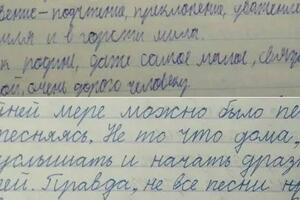 вение – почтение, преклонение, уважение
емля и в горсти мила.
к родине, даже самое малое, связ
ой, очень дорого человеку.
ней мере можно было пе
песняясь. Не то что дома,
услышать и начать дразн
ей. Правда, не все песни нр